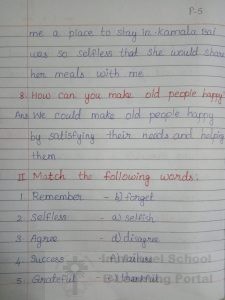 P-5
me a place to stay in. Kamala bai
was so selfless that she would share
her meals with me
8. How can you make old people happy
Ans We could make old people happy
by satisfying their needs and helping
them.
II Match the following words:
1. Remember - b) forget
2. Selfless - a) selfish
3. Agree - d) disagree
4. Success - failure
5. Grateful - thankful
School
Portal